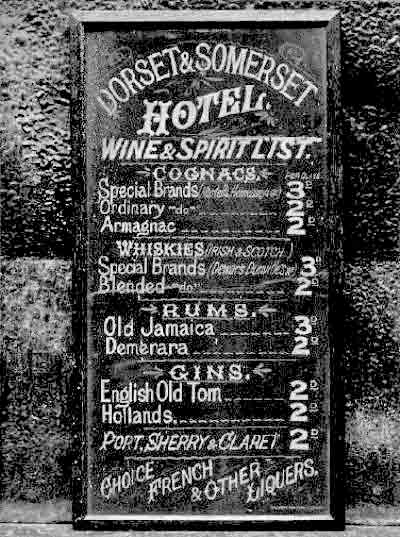 DORSET & SOMERSET
HOTEL.
WINE & SPIRIT LIST.
COGNACS.
Special Brands 3D
Ordinary "do" 2D
Armagnac 2D
WHISKIES (IRISH & SCOTCH)
Special Brands (Dewars 3D
Blended "do" 2D
RUMS.
Old Jamaica 3D
Demerara 2D
GINS.
English Old Tom 2D
Hollands. 2D
PORT, SHERRY & CLARET 2D
CHOICE FRENCH & OTHER LIQUERS.